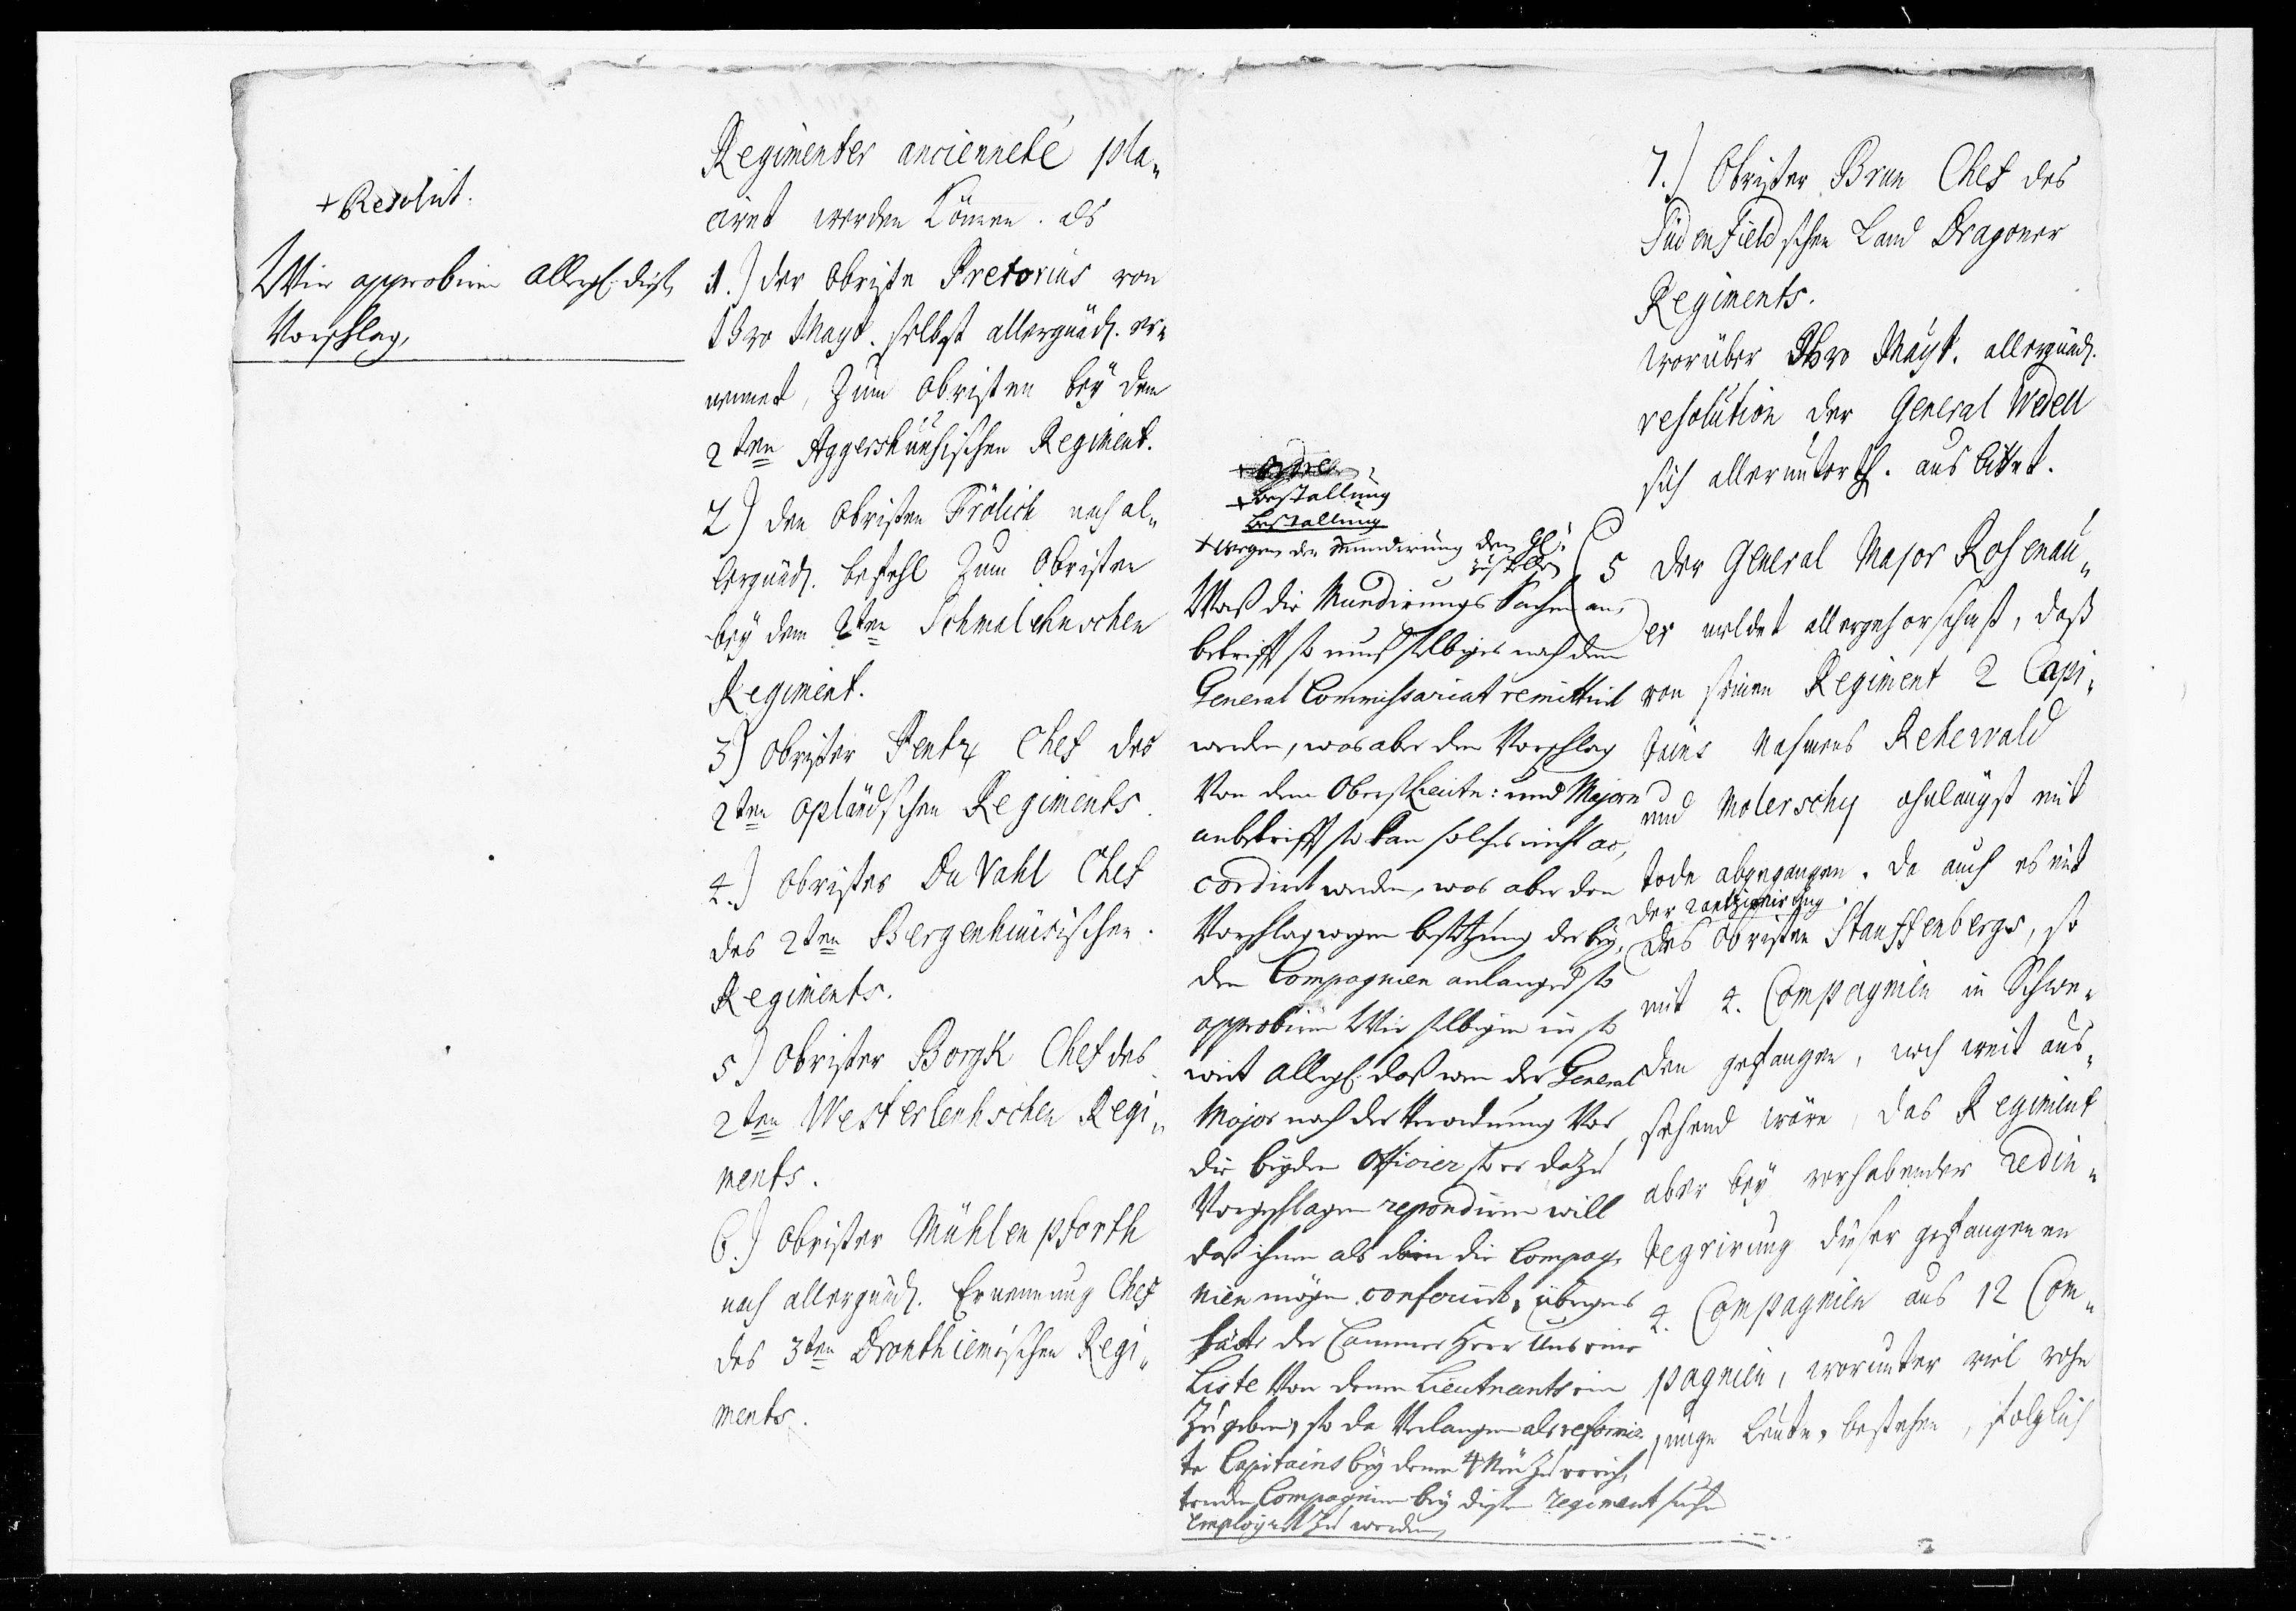 + Resolut.
Wir approbiren allergl: diesen
Vorschlag,
Regimenter ancienneté pla„
ciret werden können. als
1.) der Obriste Pretorius von
Ihro Mayt. selbst allergnäd. er„
nennet, zum Obristen bey dem
2ten Aggershuusischen Regiment.
2) den Obristen Frölich nach al„
lergnäd. befehl zum Obristen
bey dem 2ten Schmalehnschen
Regiment.
3) Obrister Pentz Chef des
2ten opländschen Regiments.
4.) Obrister Du Vahl Chef
des 2ten Bergenhuusischen
Regiments.
5) Obrister Borgk Chef des
2ten Westerlenhschen Regi„
ments.
6.) Obrister Mühlenpforth
nach allergnäd. Ernennung Chef
des 3ten Dronthiemischen Regi„
ments.
+ bestallung
bestallung
+ wegen der Mundirung dem
Waß die Mundirungs Sachen an„
betrifft so muß selbiges nach dem
General Commissariat remittirt
werden, was aber den Vorschlag
Von dem Obristlieutn: und Majorn
anbetrifft so kan solches nicht ac„
cordirt werden, was aber den
Vorschlag wegen besetzung der bey„
den Compagnien anlanget so
approbiren Wir selbigen in so
weit allergl: daß wen der General
Major nach der Verordnung Vor
die beyden Officier so er dazu
Vorgeschlagen repondiren will
daß ihnen als dan die Compag„
nien mögen conferirt, übrigens
hätte der Cammer Herr Uns eine
Liste Von denen Lieutnants ein
zu geben, so da Verlangen als reformir„
te Capitains bey denen 4 Neu zu errich„
tenden Compagnien bey diesem Regiment
employrt zu werden,
7.) Obrister Brun Chef des
Südenfieldschen Land Dragoner
Regiments.
worüber Ihro Mayt. allergnäd.
resolution der General Wedell
sich allerunterth. aus bittet.
5 Der General Major Rosenau„
er meldet allergehorsamst, daß
von seinen Regiment 2 Capi„
tains Nahmens Rehewald
und Molerschy ohnlängst mit
tode abgegangen. Da auch es mit
der rantzionirung
des Obristen Stauffenbergs, so
mit 4. Compagnien in Schwe„
den gefangen, noch weit aus„
sehend wäre, das Regiment
aber bey vorhabender redin„
tegrirung dieser gefangenen
4. Compagnien aus 12 Com„
pagnien, worunter viel rohe
junge Leute, bestehen, folglich